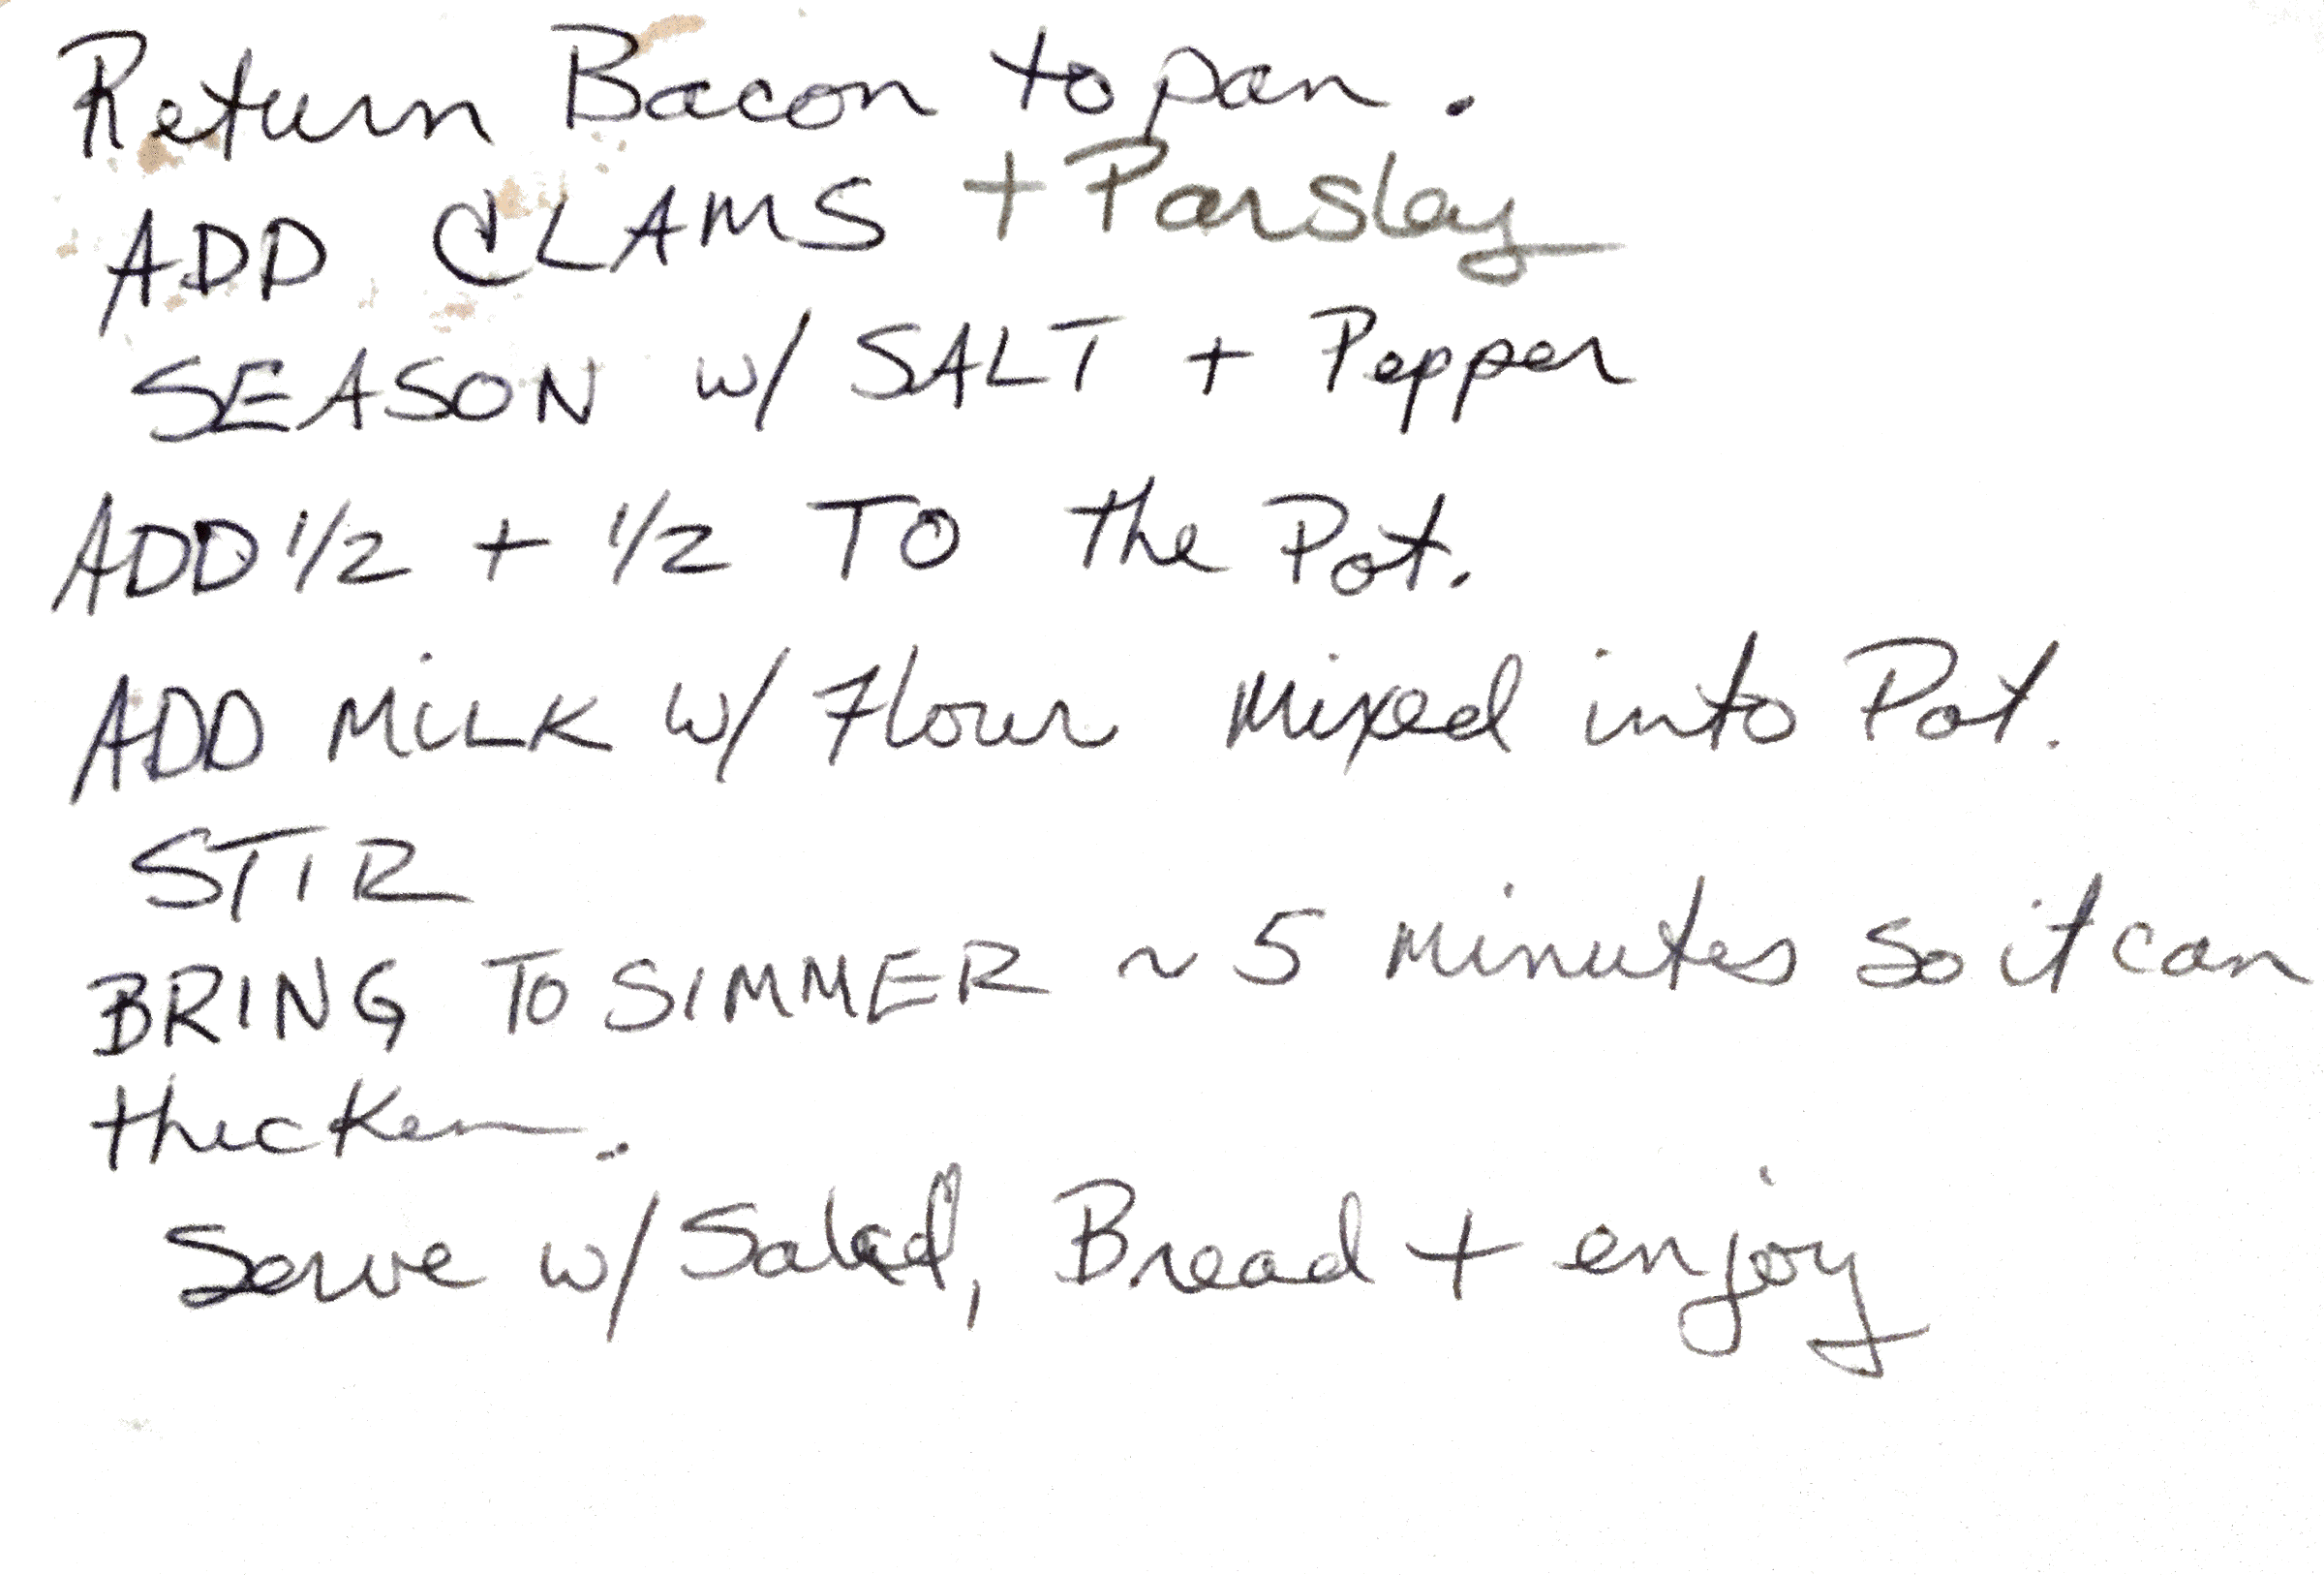 Return Bacon to pan.
ADD CLAMS + Parsley
SEASON w/ SALT + Pepper
ADD 1/2 + 1/2 TO the Pot.
ADD MILK w/ Flour Mixed into Pot.
STIR
BRING TO SIMMER ~ 5 Minutes so it can
thicken.
Serve w/ Salad, Bread + enjoy